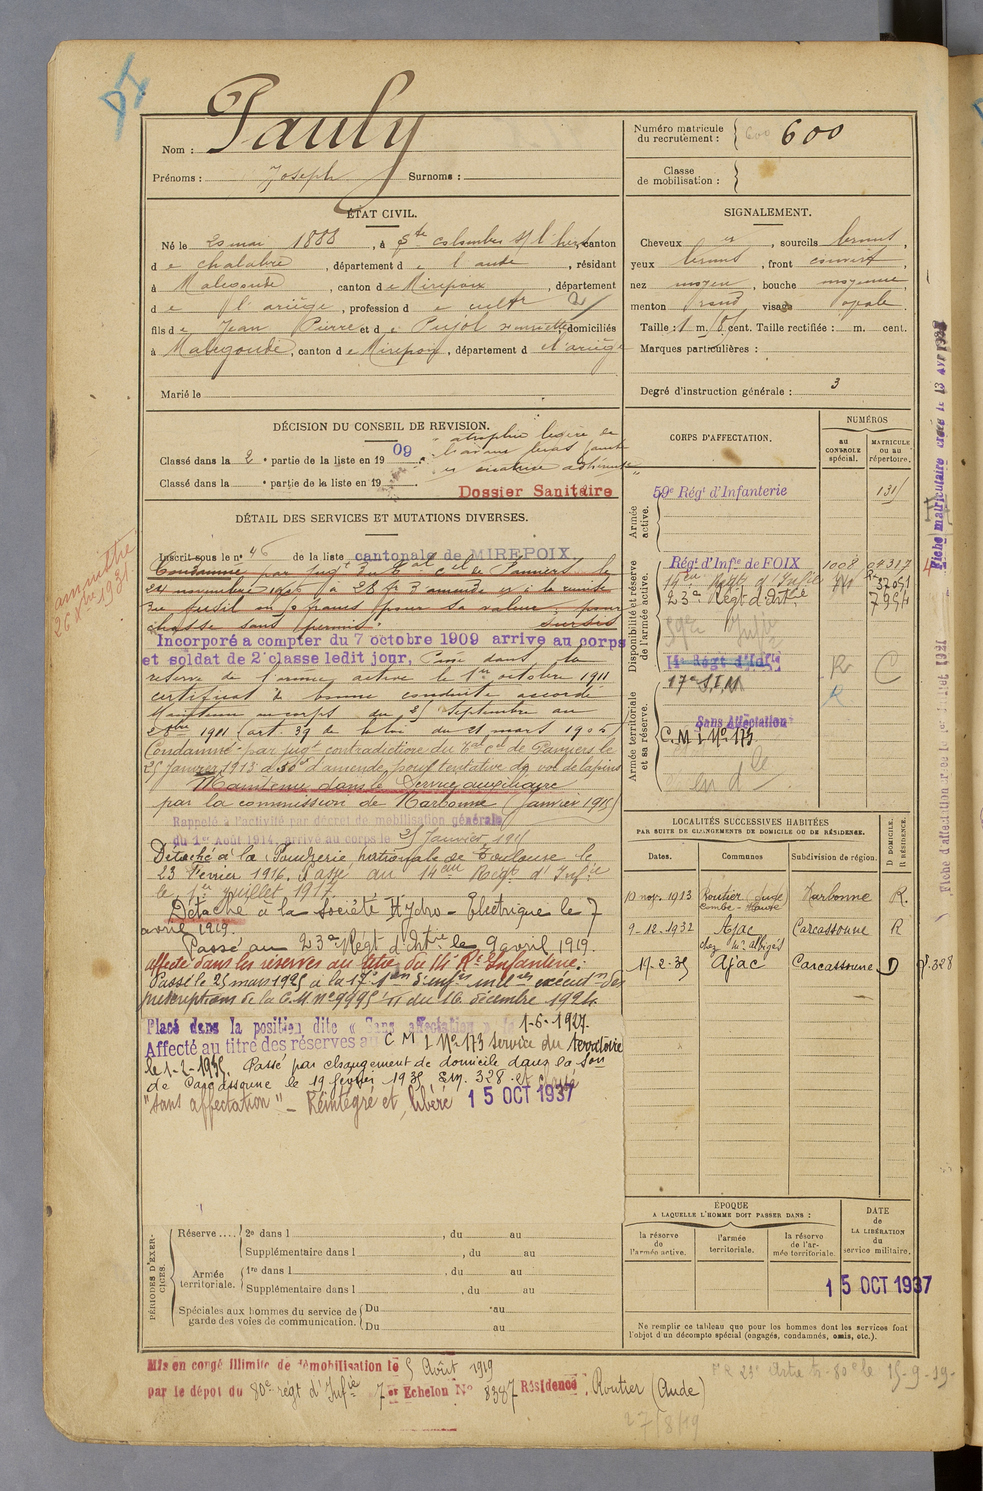 Nom : Pauly
Prénoms : Joseph Surnoms :
Numéro matricule du recrutement : 600 600
Classe de mobilisation :
ÉTAT CIVIL.
Né le 20 mai 1888, à Ste Colombes s/ l'hers, canton
de Chalabre, département de l'aude, résidant
à Malegoude, canton de Mirepoix, département
de l'ariège, profession de cultr 2/
fils de Jean Pierre et de Pujol Henriette, domiciliés
à Malegoude, canton de Mirepoix, département d l'ariège
Marié le
SIGNALEMENT.
Cheveux , sourcils bruns,
yeux bruns, front couvert,
nez moyen, bouche moyenne
menton rond visage ovale.
Taille : 1 m. cent. Taille rectifiée : m. cent.
Marques particulières :
Degré d'instruction générale : 3
DÉCISION DU CONSEIL DE REVISION.
Classé dans la 2e partie de la liste en 1909.
atrophie légère de
l'avant bras
et cicatrice adhérente
Classé dans la e partie de la liste en 19
Dossier Sanitaire
DÉTAIL DES SERVICES ET MUTATIONS DIVERSES.
Inscrit sous le no 46 de la liste cantonale de MIREPOIX.
Condamné par jugt du Bal Cel de Pamiers le
24 novembre 1906 à 28 fr d'amende et à la remise
du fusil ou 50 francs pour sa valeur, pour
chasse sans permis. Sursis
Incorporé a compter du 7 octobre 1909 arrive au corps
et soldat de 2e classe ledit jour, Passé dans la
réserve de l'armée active le 1er octobre 1911
certificat de bonne conduite accordé
Maintenu au corps du 25 Septembre au
1911 (art. 39 de la loi du 21 mars 1905)
Condamné par jugt contradictoire du Bal Cel de Pamiers le
25 Janvier 1913 à 50 d'amende pour tentative de vol de lapins
Maintenu dans le Service auxiliaire
par la commission de Narbonne (Janvier 1915)
Rappelé à l'activité par décret de mobilisation générale
du 1er Août 1914, arrivé au corps le 25 Janvier 1915
Détaché à la Poudrerie nationale de Toulouse le
23 Février 1916. Passé au 14ème Régt d'Infie
le 1er Juillet 1917.
Détaché à la Société Hydro-Electrique le 7
avril 1919.
Passé au 23e Régt d'Artie le 9 avril 1919.
affecté dans les réserves au titre du 14e Rt Infanterie.
Passé le 25 mars 1925 à la 17e Son d'infrs milres exécutn des
prescriptions de la C.M. no 9995 /11 du 16 décembre 1924.
Placé dans la position dite « Sans affectation » le 1-6-1927.
Affecté au titre des réserves au C M I No 173 service du territoire
le 1-2-1935. Passé par changement de domicile dans la Son
de Carcassonne le 19 février 1935 Em. 328. et classé
"sans affectation" - Réintégré et libéré 15 OCT 1937
amnistie
26 Xbre 1931
CORPS D'AFFECTATION.
NUMÉROS
au CONTROLE spécial.
MATRICULE OU AU répertoire.
Armée active.
59e Régt d'Infanterie 131
Disponibilité et réserve de l'armée active.
Régt d'Infie de FOIX 1008 04317
14ème Régt d'Infie
23e Régt d'Artie
59e Infie
14e Régt d'Infie R C
Armée territoriale et sa réserve.
17e S.I.M. R
Sans Affectation
C.M I No 173
LOCALITÉS SUCCESSIVES HABITÉES
PAR SUITE DE CHANGEMENTS DE DOMICILE OU DE RÉSIDENCE.
Dates. Communes Subdivision de région. D DOMICILE. R RÉSIDENCE.
10 nov. 1913 Routier (Aude) Combe-Haute Narbonne R.
9-12-1932 Ajac chez Mr Carcassonne R
19-2-35 Ajac Carcassonne D
ÉPOQUE
A LAQUELLE L'HOMME DOIT PASSER DANS :
la réserve de l'armée active. l'armée territoriale. la réserve de l'armée territoriale.
DATE de LA LIBÉRATION du service militaire.
15 OCT 1937
Ne remplir ce tableau que pour les hommes dont les services font
l'objet d'un décompte spécial (engagés, condamnés, omis, etc.).
PÉRIODES D'EXERCICES.
Réserve .... 2e dans l , du au
Supplémentaire dans l , du au
Armée territoriale. 1re dans l , du au
Supplémentaire dans l , du au
Spéciales aux hommes du service de garde des voies de communication. Du au
Du au
Mis en congé illimité de démobilisation le 5 Août 1919
par le dépot du 80e régt d'Infie 7er Echelon No 8387 Résidence : Routier (Aude)
27/8/19
15-9-19